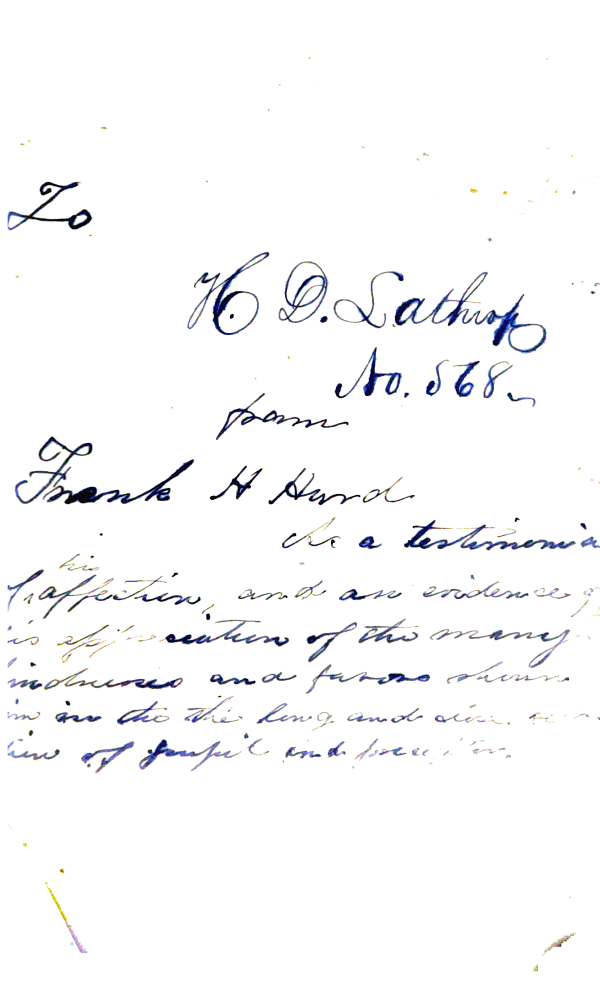 To
H. D. Lathrop
No. 568
from
Frank H Hurd
As a testimonia
his
f affection, and an evidence of
is appreciation of the many
indnesses and favors shown
im in the the long and
tion of pupil and preceptor.